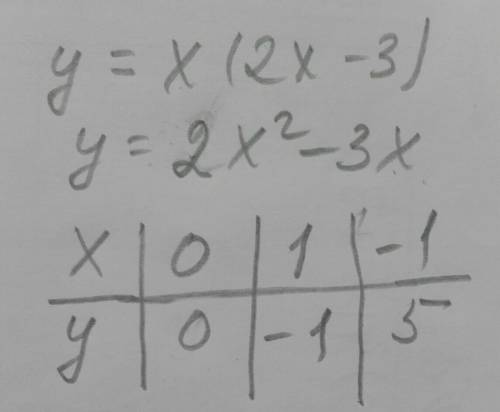 y = x(2x - 3)
y = 2x² - 3x
x | 0 | 1 | -1
y | 0 | -1 | 5